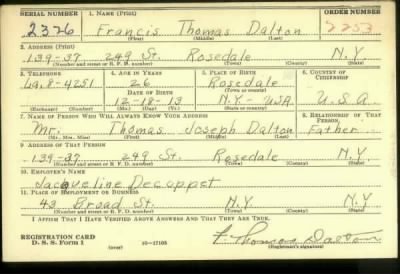 SERIAL NUMBER 1. NAME (Print) ORDER NUMBER
2326 Francis Thomas Dalton 2253
(First) (Middle) (Last)
2. ADDRESS (Print)
139-37 249 St. Rosedale N.Y.
(Number and street or R. F. D. number) (Town) (County) (State)
3. TELEPHONE 4. AGE IN YEARS 5. PLACE OF BIRTH 6. COUNTRY OF CITIZENSHIP
La. 8-4251 26 Rosedale
DATE OF BIRTH (Town or county)
12-18-13 N.Y. - USA U.S.A.
(Exchange) (Number) (Mo.) (Day) (Yr.) (State or country)
7. NAME OF PERSON WHO WILL ALWAYS KNOW YOUR ADDRESS 8. RELATIONSHIP OF THAT PERSON
Mr. Thomas Joseph Dalton Father
(Mr., Mrs., Miss) (First) (Middle) (Last)
9. ADDRESS OF THAT PERSON
139-37 249 St. Rosedale N.Y.
(Number and street or R. F. D. number) (Town) (County) (State)
10. EMPLOYER'S NAME
Jacqueline Decoppet
11. PLACE OF EMPLOYMENT OR BUSINESS
43 Broad St. N.Y. N.Y.
(Number and street or R. F. D. number) (Town) (County) (State)
I AFFIRM THAT I HAVE VERIFIED ABOVE ANSWERS AND THAT THEY ARE TRUE.
REGISTRATION CARD
D. S. S. Form 1 (over) 16-17105 F. Thomas Dalton
(Registrant's signature)